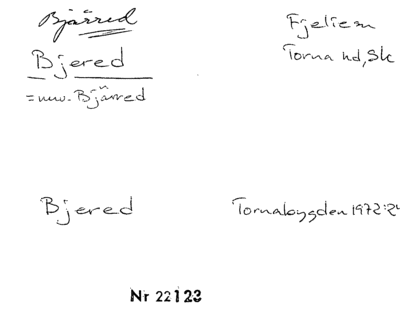 Bjärred
Fjelie sn
Bjered
Torna hd, Sk
= nuv. Bjärred
Bjered
Tornabygden 1972:2
Nr 22123